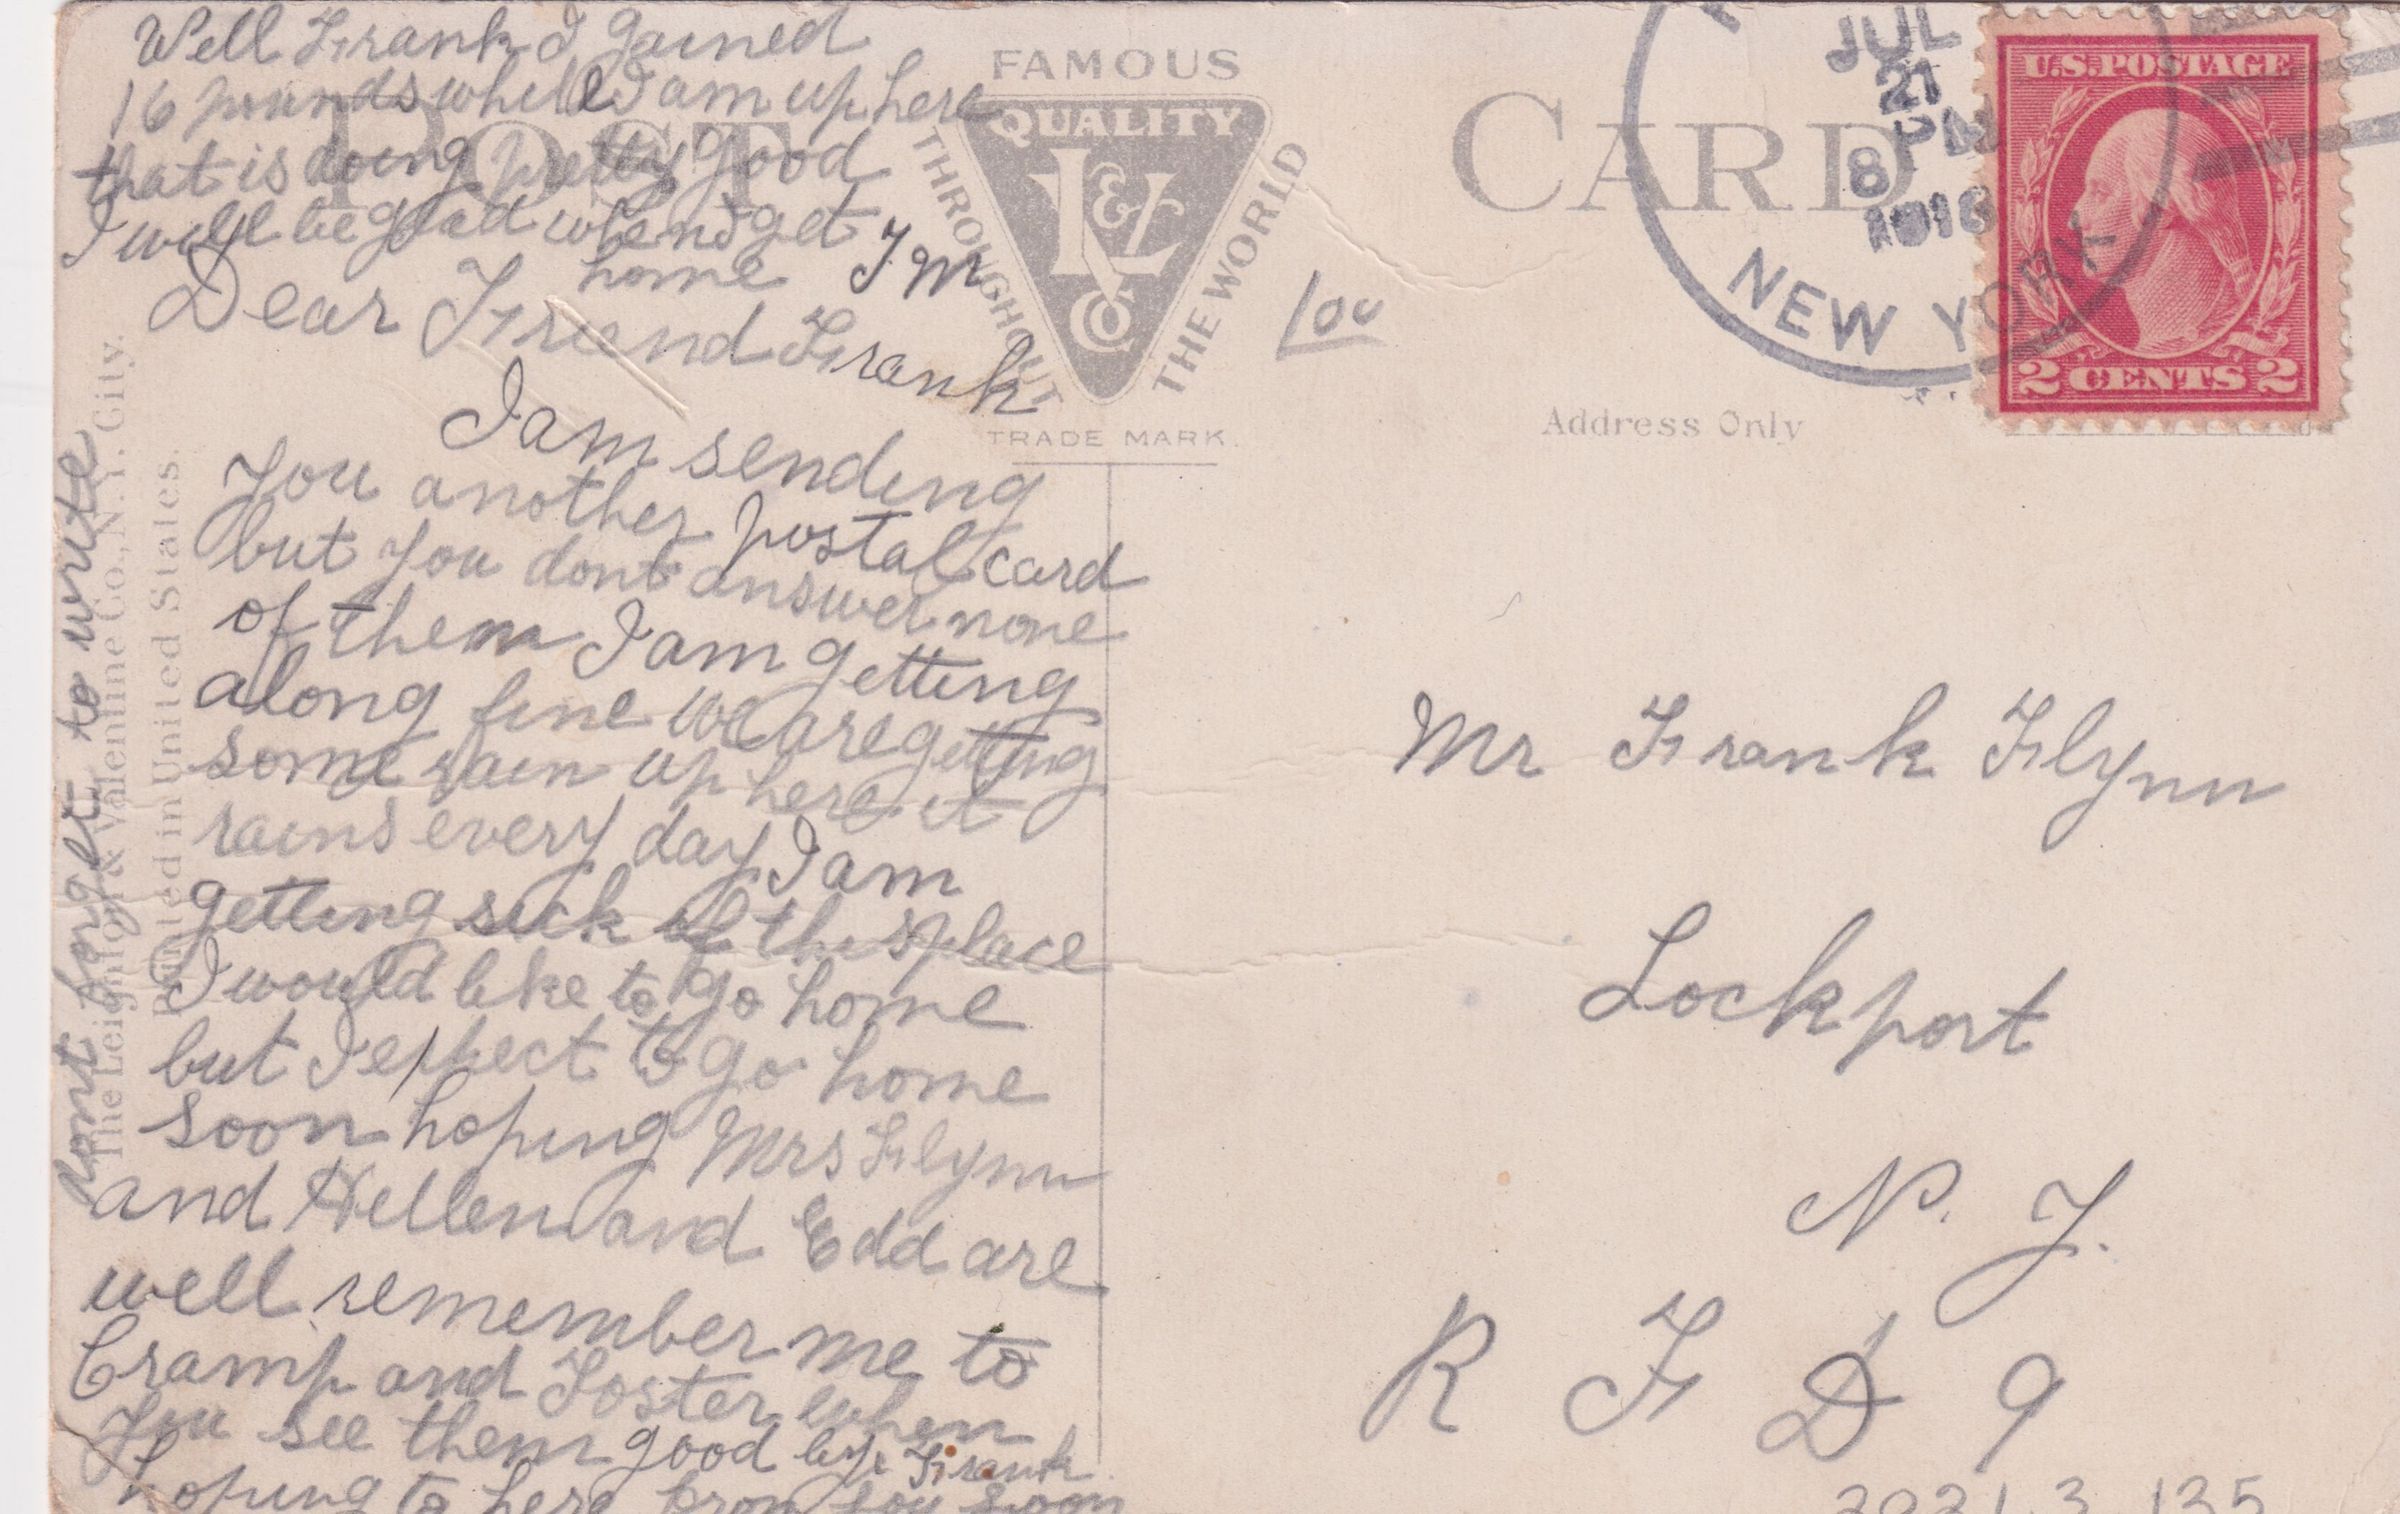 Well Frank I gained
16 pounds while I am up here
that is doing pretty good
I will be glad when I get
home J M
Dear Friend Frank
I am sending
you another postal card
but you dont answer none
of them I am getting
along fine we are getting
some rain up here it
rains every day I am
getting sick of this place
I would like to go home
but I expect to go home
soon hoping Mrs Flynn
and Hellen and Edd are
well remember me to
Cramp and Foster when
you see them good bye Frank
hoping to here from you soon
dont forget to write
The Leighton & Valentine Co., N.Y. City.
Printed in United States.
POST CARD
FAMOUS
QUALITY
L & V
Co
THROUGHOUT THE WORLD
TRADE MARK.
100
Address Only
JUL
21
8 PM
1916
NEW YORK
U.S. POSTAGE
2 CENTS 2
Mr Frank Flynn
Lockport
N. J.
R F D 9
2021.3.135